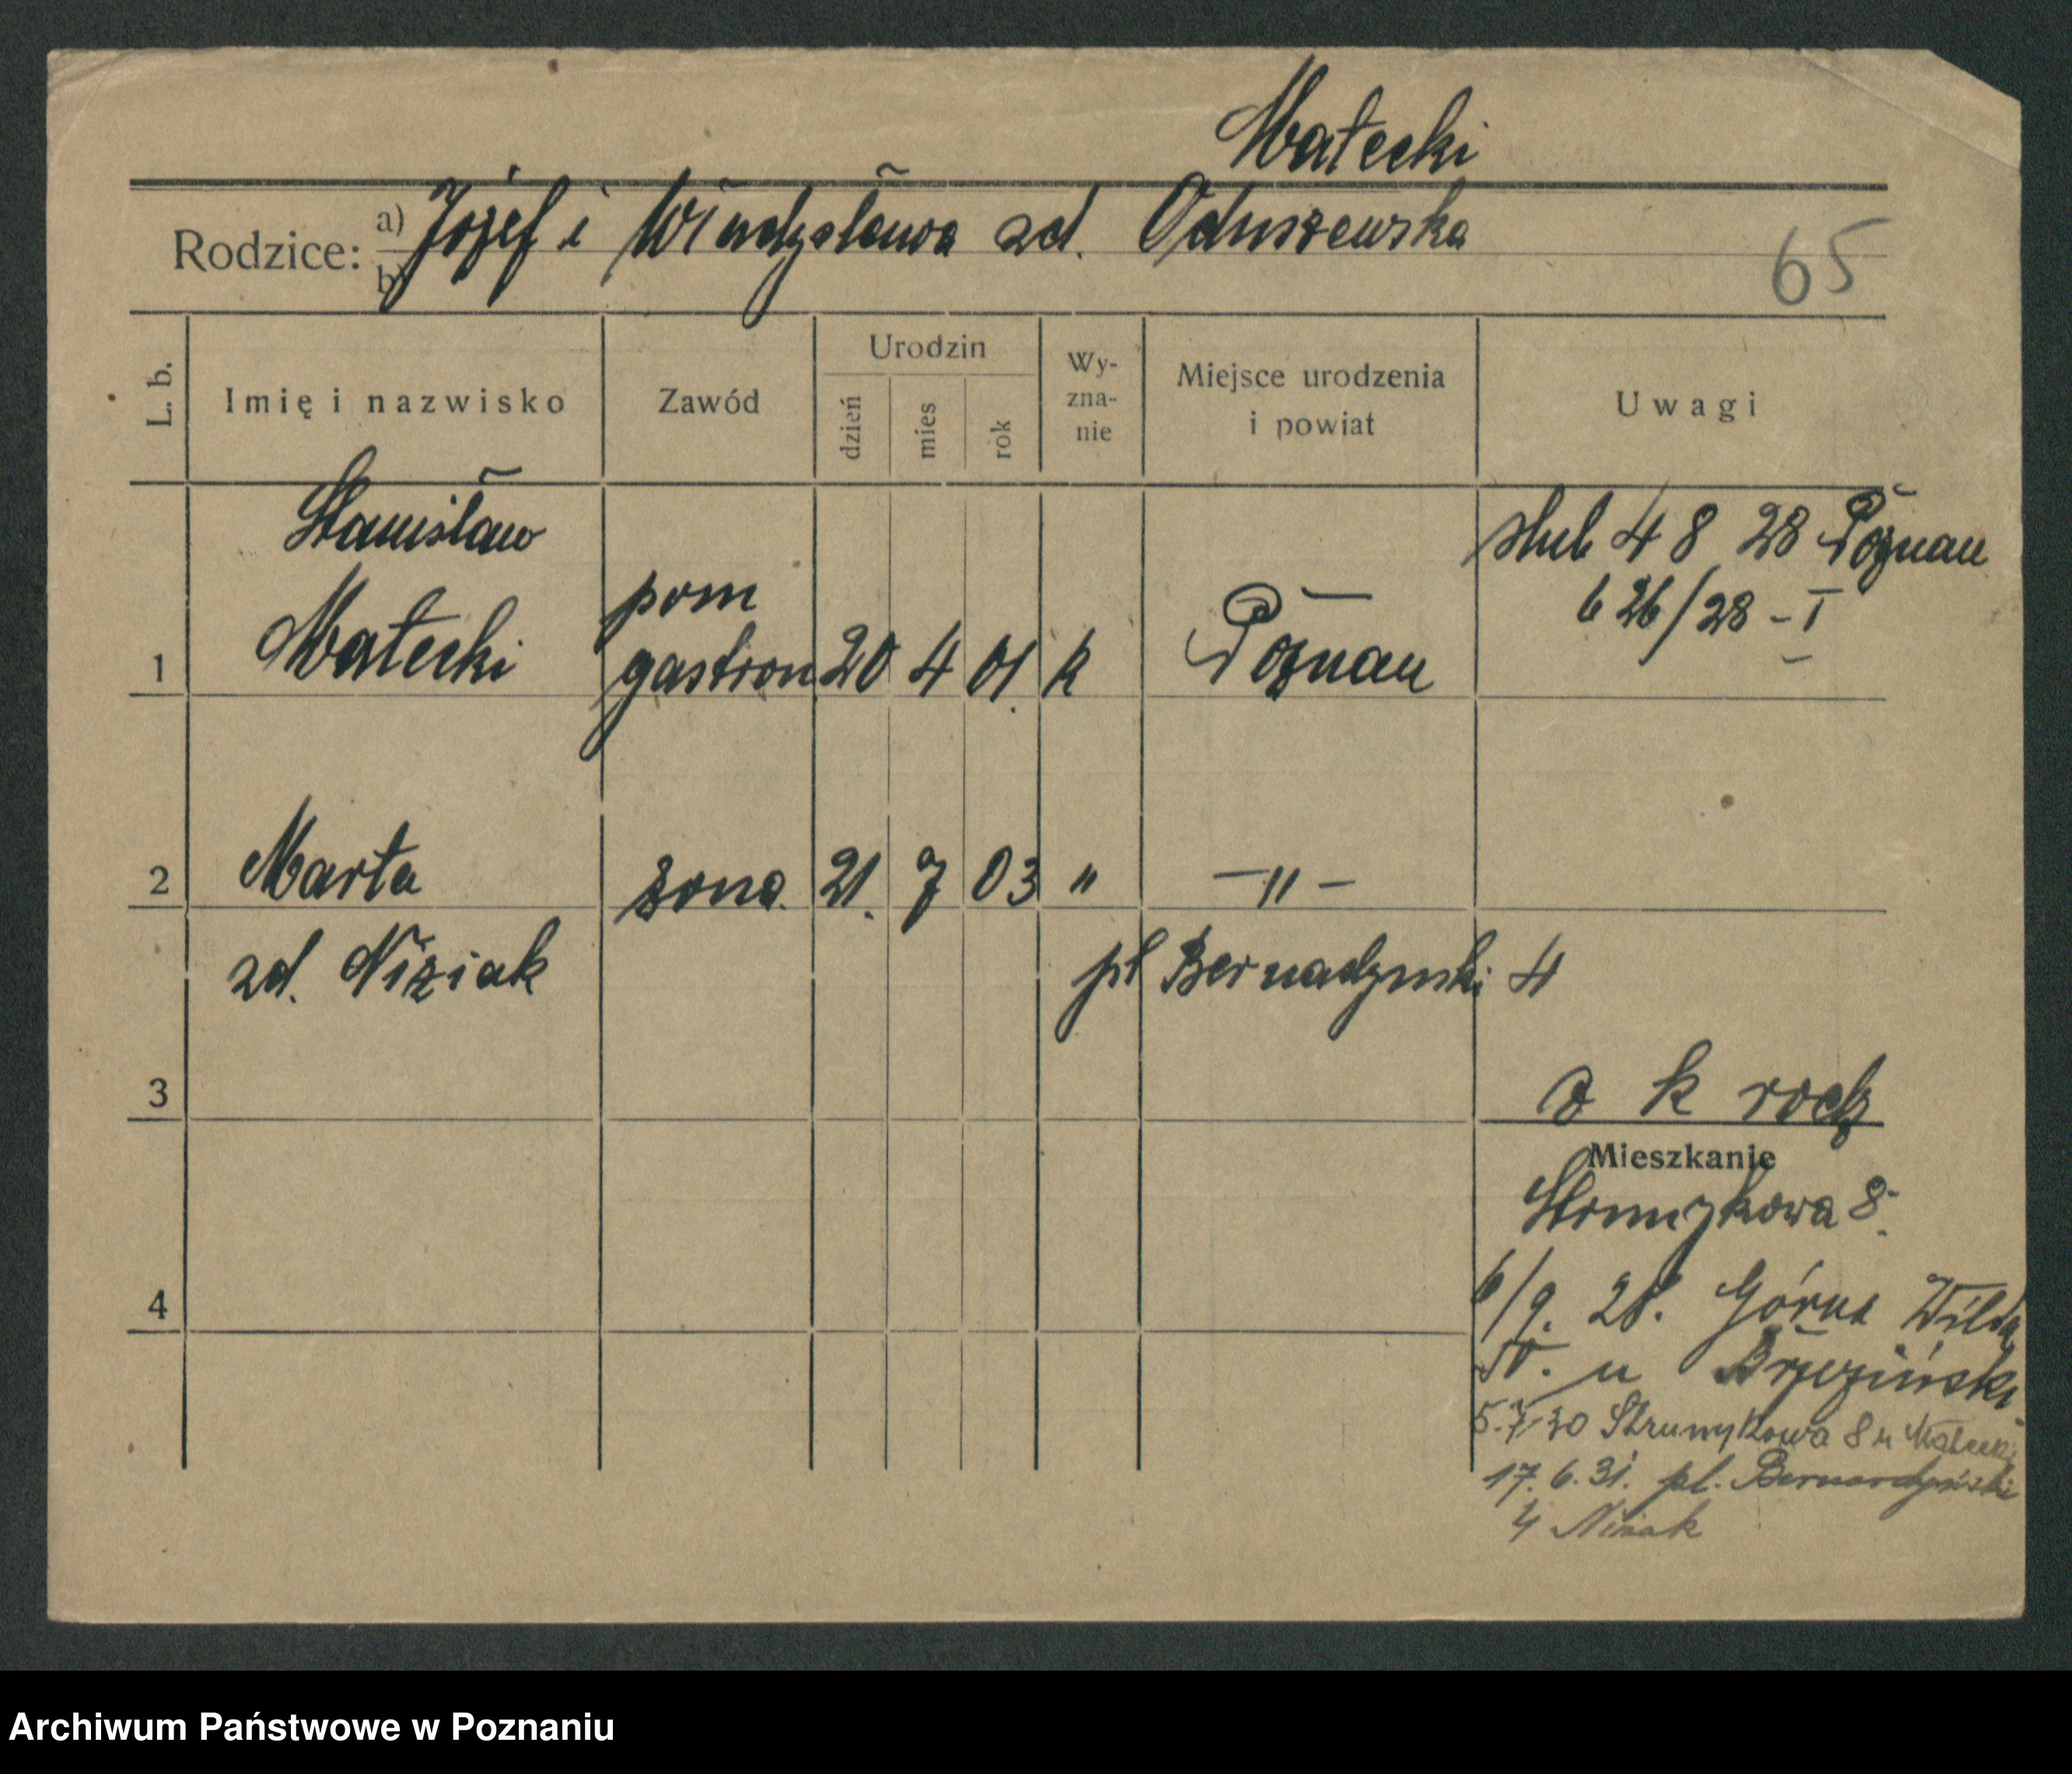 Małecki
Rodzice: a) Józef i Władysława zd. Oduszewska
b)
65
L. b. Imię i nazwisko Zawód Urodzin dzień mies rok Wy-zna-nie Miejsce urodzenia i powiat Uwagi
Stanisław
ślub 4 8 28 Poznań
626/28 - I
pom
1 Małecki gastron 20 4 01. k Poznań
2 Marta żona. 21. 7 03 " -"-
zd. Niziak
pl Bernadyński 4
3
o k rodz
Mieszkanie
Strumykowa 8.
4
6/9. 28. Górna Wilda
u Brzeziński
5.7.30 Strumykowa 8 u Małecki
17.6.31. pl. Bernardyński
4 Niziak
Archiwum Państwowe w Poznaniu